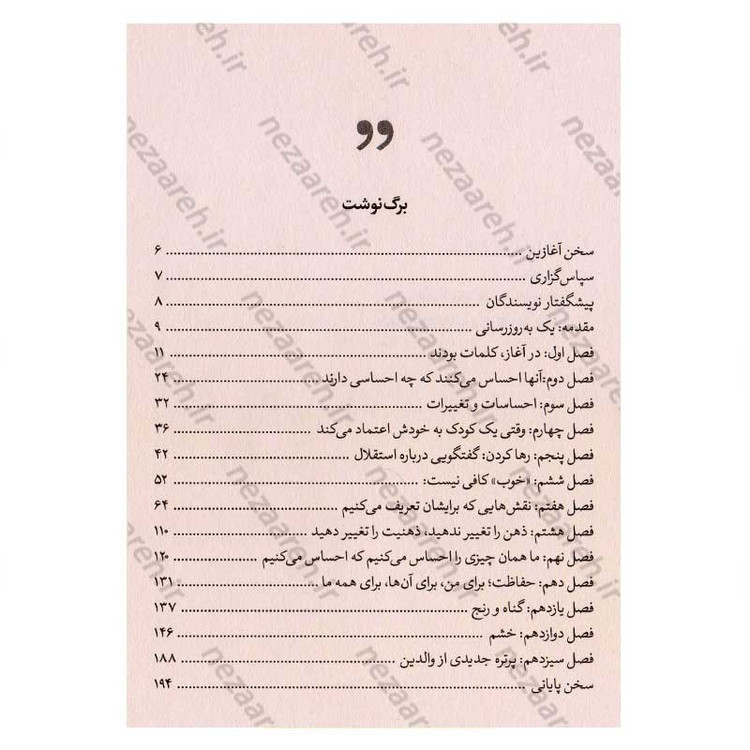 برگ‌نوشت
سخن آغازین ........ ۶
سپاس‌گزاری ........ ۷
پیشگفتار نویسندگان ........ ۸
مقدمه: یک به‌روزرسانی ........ ۹
فصل اول: در آغاز، کلمات بودند ........ ۱۱
فصل دوم:آنها احساس می‌کنند که چه احساسی دارند ........ ۲۴
فصل سوم: احساسات و تغییرات ........ ۳۲
فصل چهارم: وقتی یک کودک به خودش اعتماد می‌کند ........ ۳۶
فصل پنجم: رها کردن: گفتگویی درباره استقلال ........ ۴۲
فصل ششم: «خوب» کافی نیست: ........ ۵۲
فصل هفتم: نقش‌هایی که برایشان تعریف می‌کنیم ........ ۶۴
فصل هشتم: ذهن را تغییر ندهید، ذهنیت را تغییر دهید ........ ۱۱۰
فصل نهم: ما همان چیزی را احساس می‌کنیم که احساس می‌کنیم ........ ۱۲۰
فصل دهم: حفاظت؛ برای من، برای آن‌ها، برای همه ما ........ ۱۳۱
فصل یازدهم: گناه و رنج ........ ۱۳۷
فصل دوازدهم: خشم ........ ۱۴۶
فصل سیزدهم: پرتره جدیدی از والدین ........ ۱۸۸
سخن پایانی ........ ۱۹۴
nezaareh.ir